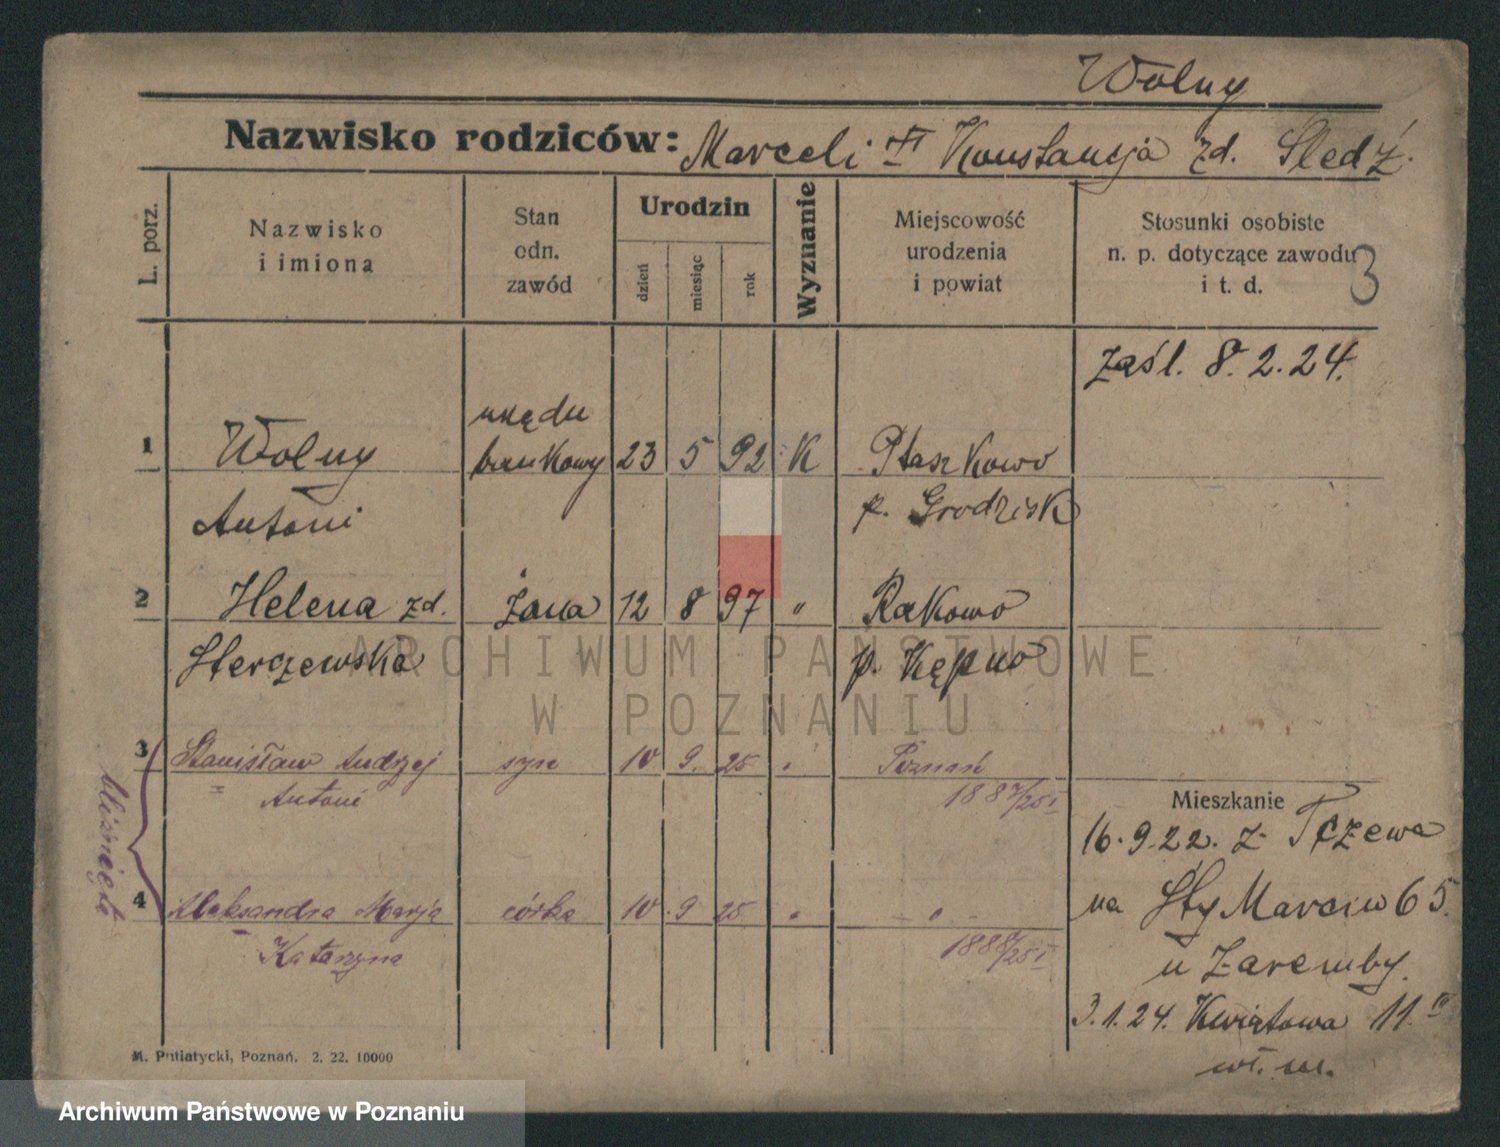 Wolny
Nazwisko rodziców: Marceli Konstancja zd. Śledź.
L. porz.
Nazwisko
i imiona
Stan
odn.
zawód
Urodzin
dzień
miesiąc
rok
Wyznanie
Miejscowość
urodzenia
i powiat
Stosunki osobiste
n. p. dotyczące zawodu
i t. d.
3
zaśl. 8.2.24.
1 Wolny bankowy 23 5 92 K Ptaszkowo
Antoni p. Grodzisk
2 Helena zd. żona 12 8 97 " Rakowo
Sterczewska p. Kępno
3 Stanisław Andrzej syn 10 9. 25 " Poznań
Antoni 1887/25 I
bliźnięta
4 Aleksandra Marja córka 10 9 25 " - " -
Katarzyna 1888/25 I
Mieszkanie
16.9.22. z Tczewa
na Sty Marcin 65.
u Zaremby.
3.1.24. Kwiatowa 11 III
wł. m.
M. Putiatycki, Poznań. 2. 22. 10000
ARCHIWUM PAŃSTWOWE
W POZNANIU
Archiwum Państwowe w Poznaniu